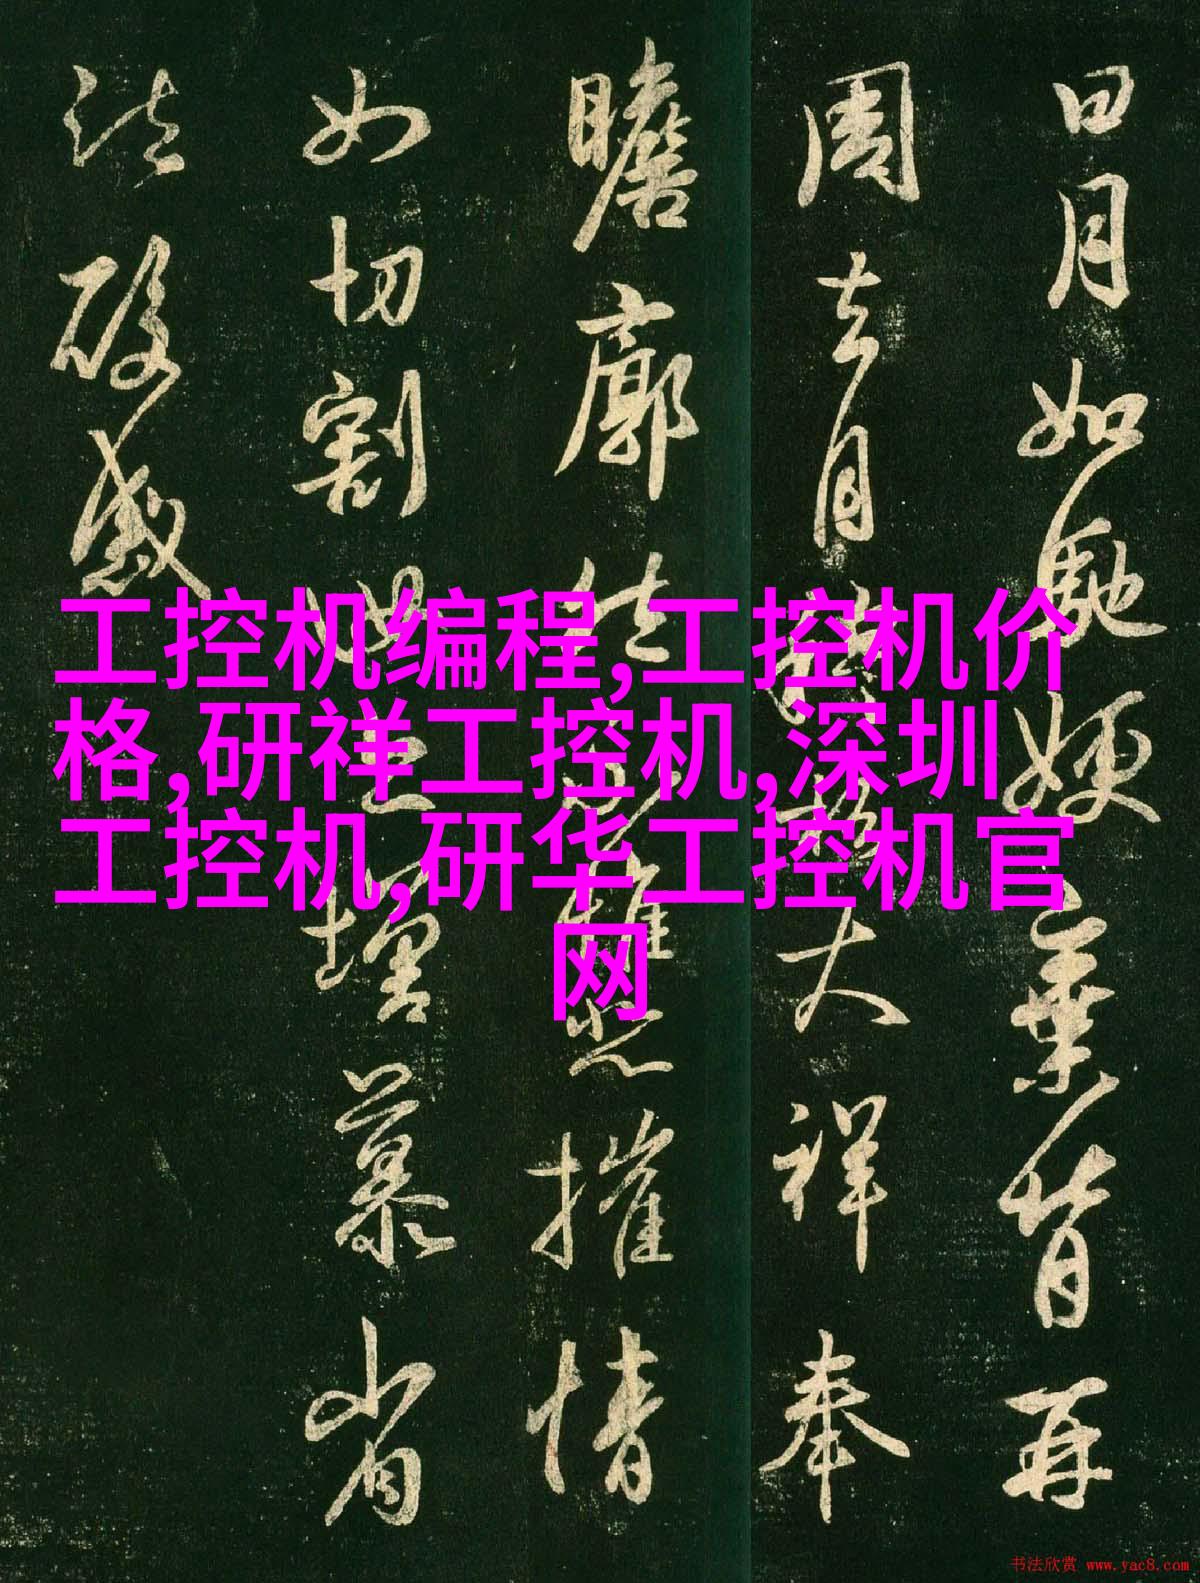 日月如馳嫂棄背再
周去月大祥奉
瞻廓摧情
如切割慕省
酸感
工控机编程,工控机价
格,研祥工控机,深圳
工控机,研华工控机官
网
书法欣赏 www.yac8.com